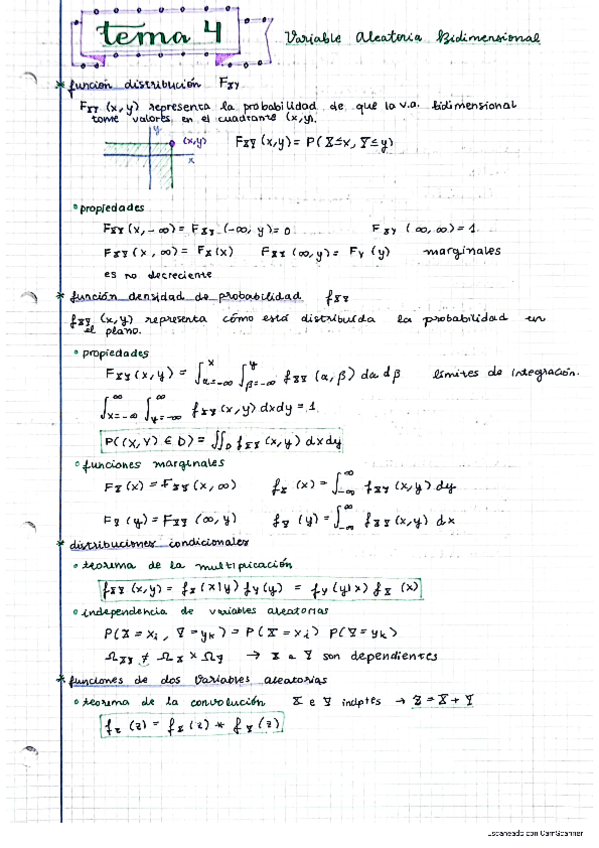 tema 4
Variable Aleatoria Bidimensional
* función distribución F_XY
F_XY (x,y) representa la probabilidad de que la v.a. bidimensional
tome valores en el cuadrante (x,y).
y
(x,y)
x
F_XY (x,y) = P(X≤x, Y≤y)
• propiedades
F_XY (x,-∞) = F_XY (-∞, y) = 0    F_XY (∞,∞) = 1
F_XY (x,∞) = F_X(x)    F_XY (∞,y) = F_Y (y)    marginales
es no decreciente
* función densidad de probabilidad f_XY
f_XY (x,y) representa cómo está distribuida la probabilidad en
el plano.
• propiedades
F_XY (x,y) = ∫_{α=-∞}^{x} ∫_{β=-∞}^{y} f_XY (α,β) dα dβ    límites de integración.
∫_{x=-∞}^{∞} ∫_{y=-∞}^{∞} f_XY (x,y) dxdy = 1
P((X,Y) ∈ D) = ∬_D f_XY (x,y) dxdy
• funciones marginales
F_X (x) = F_XY (x,∞)    f_X (x) = ∫_{-∞}^{∞} f_XY (x,y) dy
F_Y (y) = F_XY (∞,y)    f_Y (y) = ∫_{-∞}^{∞} f_XY (x,y) dx
* distribuciones condicionales
• teorema de la multipicación
f_XY (x,y) = f_X (x|y) f_Y (y) = f_Y (y|x) f_X (x)
• independencia de variables aleatorias
P(X = x_i, Y = y_k) = P(X = x_i) P(Y = y_k)
Ω_XY ≠ Ω_X × Ω_Y → X e Y son dependientes
* funciones de dos variables aleatorias
• teorema de la convolución    X e Y indptes → Z = X + Y
f_Z (z) = f_X (z) * f_Y (z)
Escaneado con CamScanner